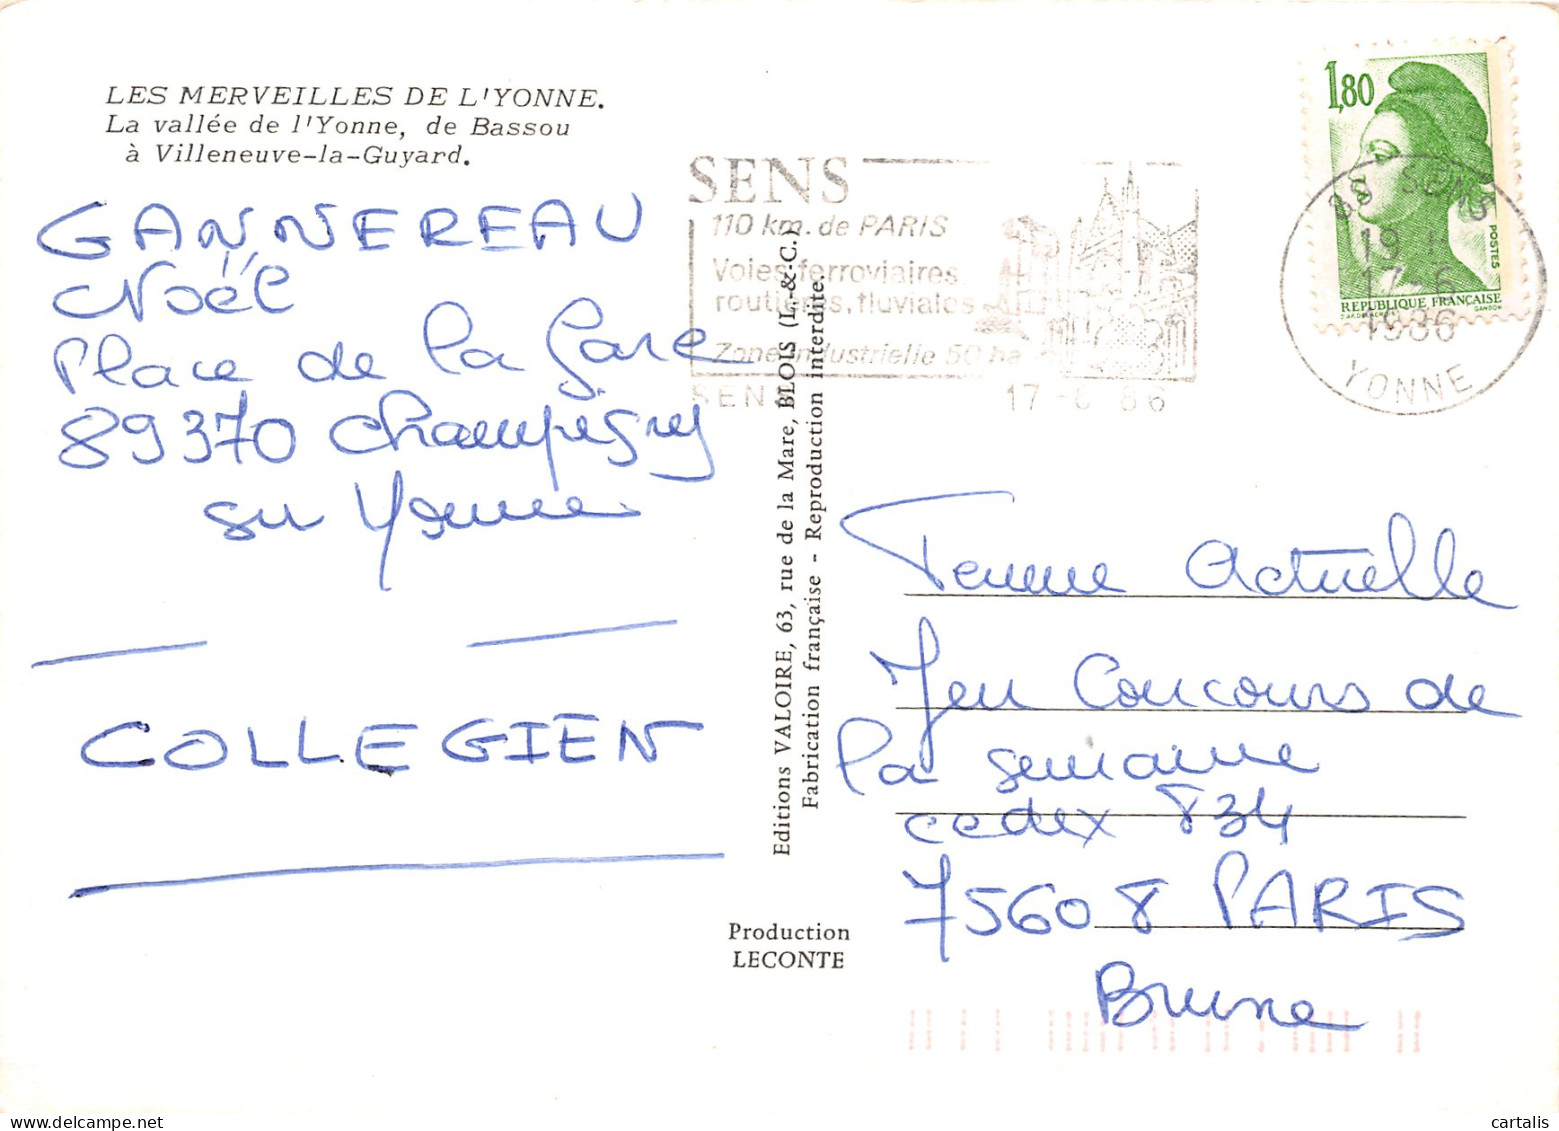 LES MERVEILLES DE L'YONNE.
La vallée de l'Yonne, de Bassou
à Villeneuve-la-Guyard.
GANNEREAU
Noël
Place de la Gare
89370 Champigny
sur Yonne
COLLEGIEN
SENS
110 km. de PARIS
Voies ferroviaires
routières, fluviales
Zone industrielle 50 ha
SENS
17-6 86
1,80
POSTES
REPUBLIQUE FRANÇAISE
GANDON
89 SENS
19 H
17-6
1986
YONNE
Editions VALOIRE, 63, rue de la Mare, BLOIS (L.-&-C.).
Fabrication française - Reproduction interdite.
Production
LECONTE
Femme Actuelle
Jeu Concours de
la semaine
cedex 834
75608 PARIS
Brune
cartalis